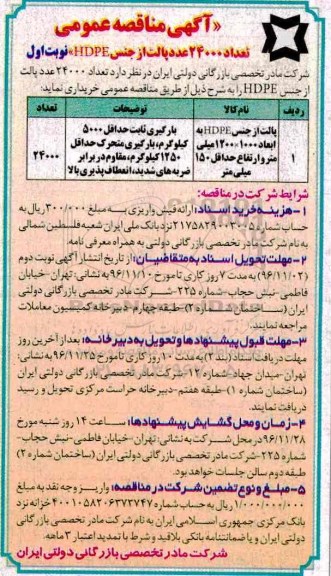 «آگهی مناقصه عمومی
تعداد ۲۴۰۰۰ عدد پالت از جنس HDPE» نوبت اول
شرکت مادر تخصصی بازرگانی دولتی ایران در نظر دارد تعداد ۲۴۰۰۰ عدد پالت
از جنس HDPE را به شرح ذیل از طریق مناقصه عمومی خریداری نماید:
ردیف نام کالا توضیحات تعداد
۱ پالت از جنس HDPE به ابعاد ۱۰۰۰*۱۲۰۰ میلی متر و ارتفاع حداقل ۱۵۰ میلی متر بارگیری ثابت حداقل ۵۰۰۰ کیلوگرم، بارگیری متحرک حداقل ۱۲۵۰ کیلوگرم، مقاوم در برابر ضربه های شدید، انعطاف پذیری بالا ۲۴۰۰۰
شرایط شرکت در مناقصه:
۱- هزینه خرید اسناد: ارائه فیش واریزی به مبلغ ۳۰۰/۰۰۰ ریال به
حساب شماره ۲۱۷۵۸۲۹۰۰۳۰۰۵ نزد بانک ملی ایران شعبه فلسطین شمالی
به نام شرکت مادر تخصصی بازرگانی دولتی به همراه معرفی نامه
۲- مهلت تحویل اسناد به متقاضیان: از تاریخ انتشار آگهی نوبت دوم
(۹۶/۱۱/۰۲) به مدت ۷ روز کاری تا مورخ ۹۶/۱۱/۱۰ به نشانی: تهران-خیابان
فاطمی- نبش حجاب-شماره ۲۲۵-شرکت مادر تخصصی بازرگانی دولتی
ایران (ساختمان شماره ۲)- طبقه چهارم-دبیرخانه کمیسیون معاملات
مراجعه نمایند.
۳- مهلت قبول پیشنهادها و تحویل به دبیرخانه: بعد از آخرین روز
مهلت دریافت اسناد (بند ۲) به مدت ۱۰ روز کاری تا مورخ ۹۶/۱۱/۲۵ به نشانی:
تهران-میدان جهاد-شماره ۱۲ شرکت مادر تخصصی بازرگانی دولتی ایران
(ساختمان شماره ۱)- طبقه هفتم-دبیرخانه حراست مرکزی تحویل و رسید
دریافت نمایند.
۴- زمان و محل گشایش پیشنهادها: ساعت ۱۴ روز شنبه مورخ
۹۶/۱۱/۲۸ در محل شرکت به نشانی: تهران-خیابان فاطمی-نبش حجاب-
شماره ۲۲۵-شرکت مادر تخصصی بازرگانی دولتی ایران (ساختمان شماره ۲)
طبقه دوم سالن جلسات خواهد بود.
۵- مبلغ و نوع تضمین شرکت در مناقصه: واریز وجه نقد به مبلغ
۱/۰۰۰/۰۰۰/۰۰۰ ریال به حساب شماره ۴۰۰۱۰۵۸۲۰۶۳۷۳۷۴۷ خزانه نزد
بانک مرکزی جمهوری اسلامی ایران به نام شرکت مادر تخصصی بازرگانی
دولتی ایران و یا ضمانتنامه بانکی بلاقید و شرط با تمدید اعتبار ۳ ماهه.
شرکت مادر تخصصی بازرگانی دولتی ایران